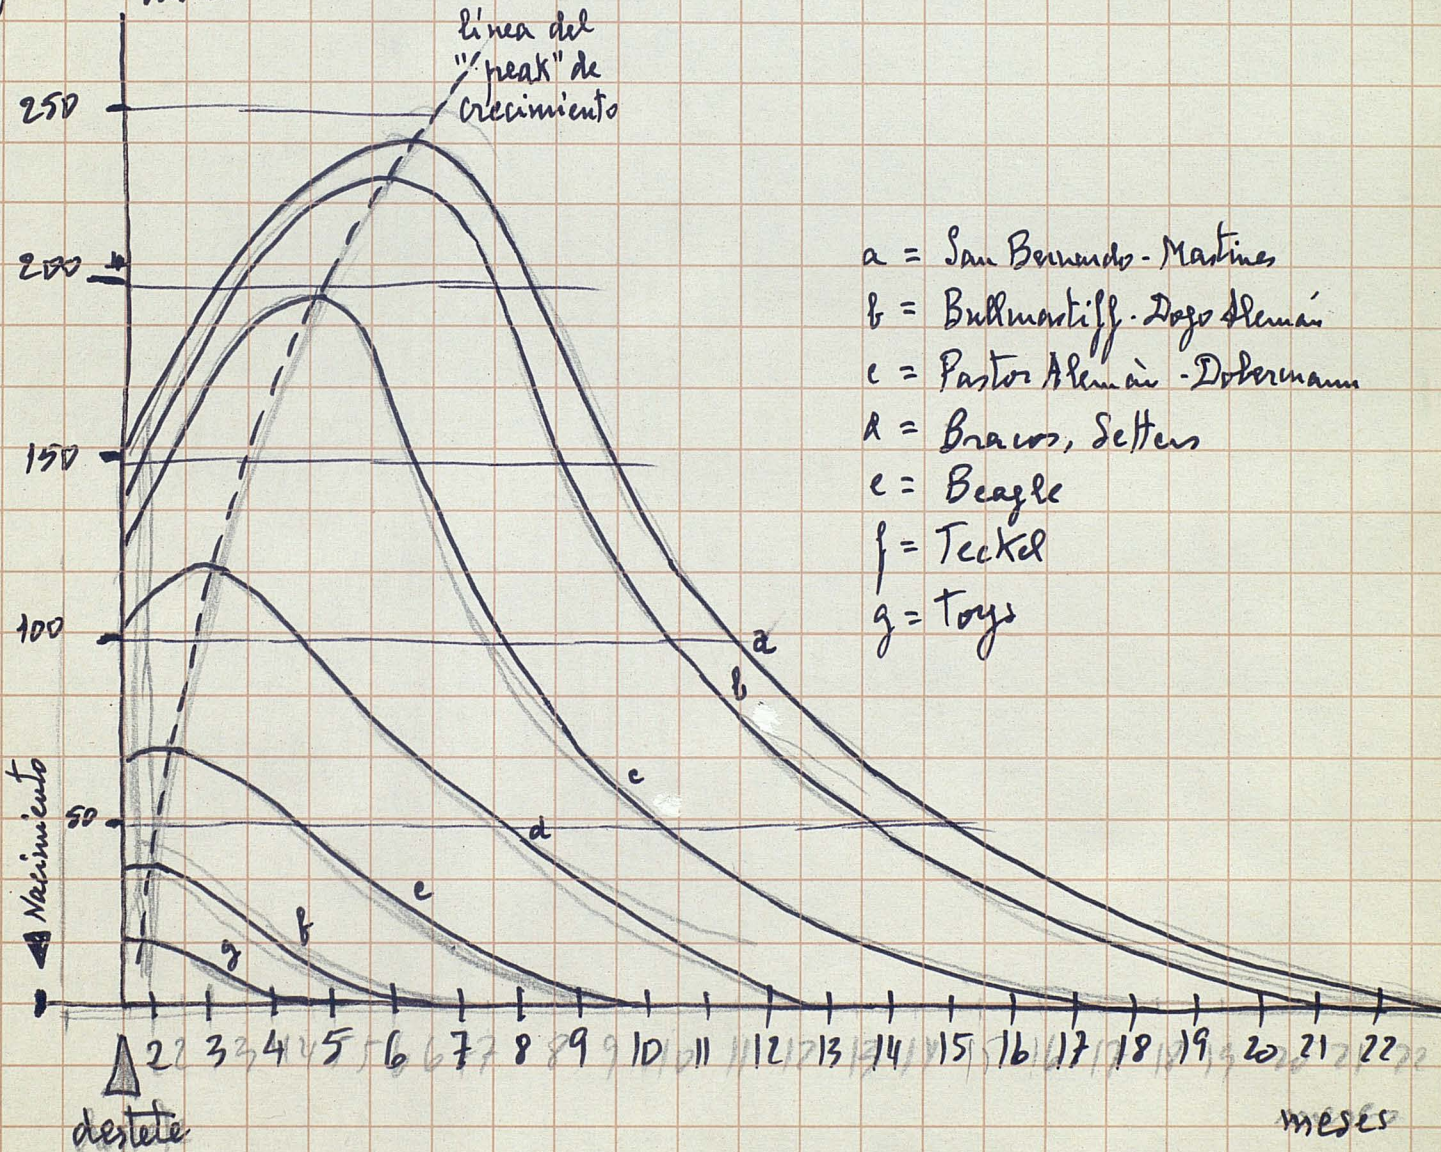 línea del
"peak" de
crecimiento
250
200
150
100
50
a = San Bernardo - Mastines
b = Bullmastiff - Dogo Alemán
c = Pastor Alemàn - Dobermann
d = Bracos, Setters
e = Beagle
f = Teckel
g = Toys
a
b
c
d
e
f
g
Nacimiento
2 3 4 5 6 7 8 9 10 11 12 13 14 15 16 17 18 19 20 21 22
destete
meses